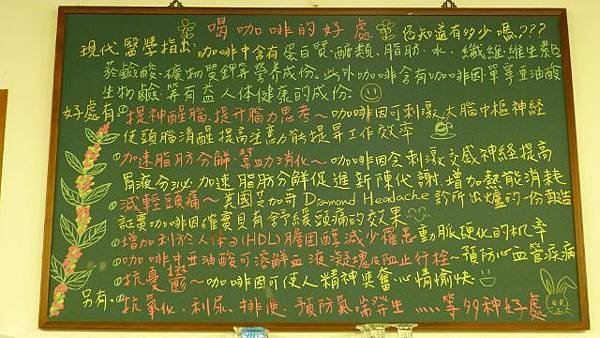 喝咖啡的好處 你知道有多少嗎???
現代醫學指出:咖啡中含有蛋白質、醣類、脂肪、水、纖維、維生素B
菸鹼酸、礦物質鉀等營養成份。此外咖啡含有咖啡因、單寧、亞油酸
生物鹼、等有益人体健康的成份。
好處有:提神醒腦、提升腦力思考~咖啡因可刺激大腦中樞神經
使頭腦清醒提高注意力能提昇工作效率
加速脂肪分解、幫助消化~咖啡因會刺激交感神經提高
胃液分泌、加速脂肪分解促進新陳代謝、增加熱能消耗
減輕頭痛~美國芝加哥 Diamond Headache 診所出爐的一份報告
証裹咖啡因確實具有舒緩頭痛的效果
增加利於人体の(HDL)膽固醇減少罹患動脈硬化的机率
咖啡中亞油酸可溶解血液凝塊及阻止行栓~預防心血管疾病
抗憂鬱~咖啡因可使人精神興奮、心情愉快
另有:抗氧化、利尿、排便、預防氣喘發生……等多种好處